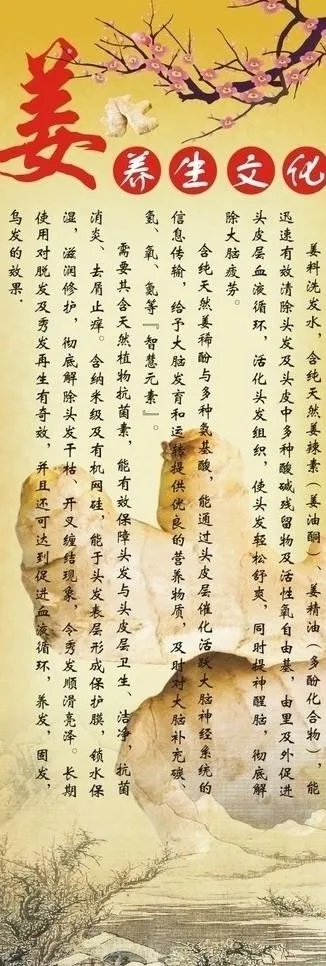 姜
养生文化
姜料洗发水，含纯天然姜辣素（姜油酮）、姜精油（多酚化合物），能
迅速有效清除头发及头皮中多种酸碱残留物及活性氧自由基，由里及外促进
头皮层血液循环，活化头发组织，使头发轻松舒爽，同时提神醒脑，彻底解
除大脑疲劳。
含纯天然姜稀酚与多种氨基酸，能通过头皮层催化活跃大脑神经系统的
信息传输，给予大脑发育和运转提供优良的营养物质，及时对大脑补充碳、
氢、氧、氮等『智慧元素』。
需要其含天然植物抗菌素，能有效保障头发与头皮层卫生、洁净，抗菌
消炎、去屑止痒。含纳米级及有机网硅，能于头发表层形成保护膜，锁水保
湿，滋润修护，彻底解除头发干枯、开叉缠结现象，令秀发顺滑亮泽。长期
使用对脱发及秀发再生有奇效，并且还可达到促进血液循环，养发，固发，
乌发的效果．